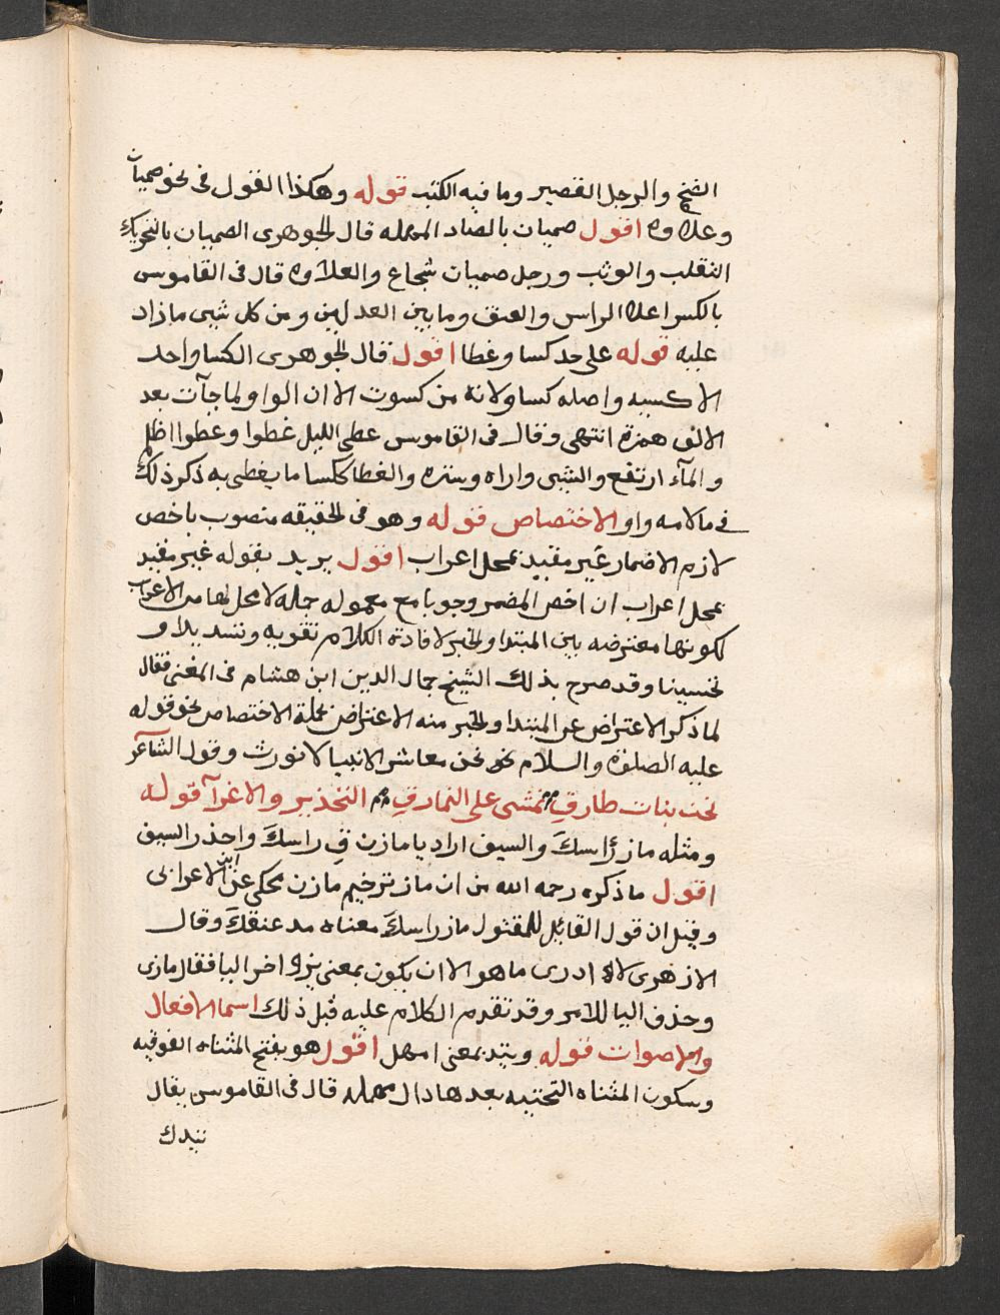 الشيخ والرجل القصير وما فيه الكتب قوله وهكذا القول فى نحو صميان
وعلاوه اقول صميان بالصاد المهمله قال الجوهرى الصميان بالتحريك
التقلب والوثب ورجل صميان شجاع والعلاوه قال فى القاموس
بالكسر اعلا الراس والعنق وما بين العدلين ومن كل شيى ما زاد
عليه قوله على حد كسا وغطا اقول قال الجوهرى الكسا واحد
الاكسيه واصله كساو لانه من كسوت الا ان الواو لما جآت بعد
الالف همزة انتهى وقال فى القاموس غطى الليل غطوا وغطوا اظلم
والمآء ارتفع والشيى واراه وستره والغطا ككسا ما يغطى به ذكر ذلك
فى ما لامه واو الاختصاص قوله وهو فى الحقيقه منصوب باخص
لازم الاضمار غير مقيد بمحل اعراب اقول يريد بقوله غير مقيد
بمحل اعراب ان اخص المضمر وجوبا مع معموله جملة لا محل لها من الاعراب
لكونها معترضه بين المبتدا والخبر لافادة الكلام تقويه وتسديدا او
تحسينا وقد صرح بذلك الشيخ جمال الدين ابن هشام فى المغنى فقال
لما ذكر الاعتراض عن المبتدا والخبر منه الاعتراض بجملة الاختصاص نحو قوله
عليه الصلوة والسلام نحو نحن معاشر الانبيا لا نورث وقول الشاعر
نحن بنات طارق نمشى على النمارق التحذير والاغرآ قوله
ومثله ماز رأسكَ والسيف اراد يا مازن قِ راسكَ واحذر السيف
اقول ما ذكره رحمه الله من ان ماز ترخيم مازن محكى عن ابن الاعرابى
وقيل ان قول القائل للمقتول ماز راسكَ معناه مد عنقكَ وقال
الازهرى لا ادرى ما هو الا ان يكون بمعنى واخر اليا فقال مازى
وحذف اليا للامر وقد تقدم الكلام عليه قبل ذلك اسما الافعال
والاصوات قوله وتيد بمعنى امهل اقول هو بفتح المثناه الفوقيه
وسكون المثناه التحتيه بعدها دال مهمله قال فى القاموس يقال
تيدك